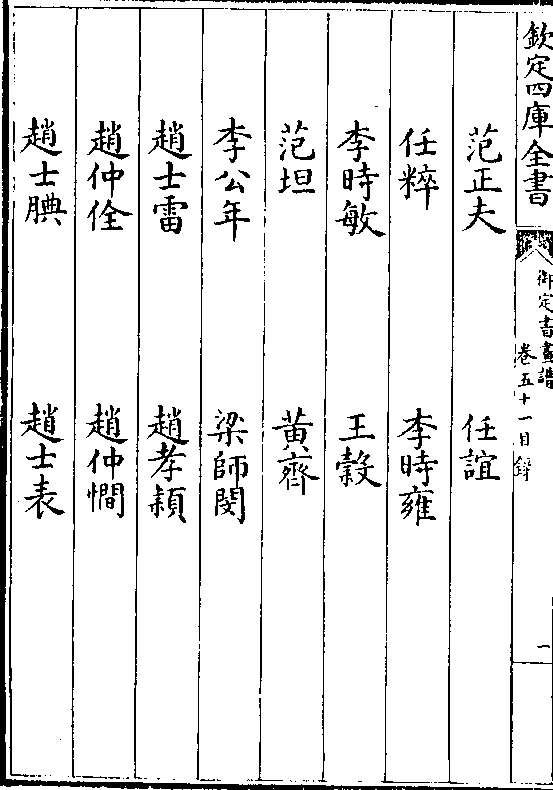 欽定四庫全書
御定書畫譜
卷五十一目録
一
范正夫 任誼
任粹 李時雍
李時敏 王穀
范坦 黃齊
李公年 梁師閔
趙士雷 趙孝穎
趙仲佺 趙仲僩
趙士腆 趙士表